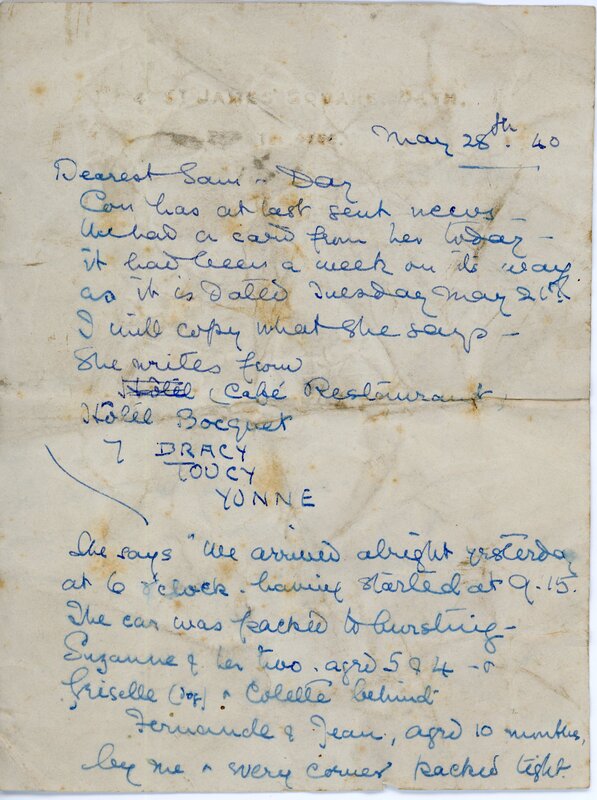 May 28th. 40
Dearest Sam - Day
Con has at last sent news -
We had a card from her today -
it had been a week on its way
as it is dated Tuesday May 21st.
I will copy what she says -
She writes from
Hôtel Café Restaurant,
Hôtel Bocquet
7 DRACY
TOUCY
YONNE
She says "We arrived alright yesterday
at 6 o'clock. having started at 9.15.
The car was packed to bursting -
Suzanne & her two. aged 5 & 4 - &
Griselle (dog) & Colette behind
Fernande & Jean, aged 10 months,
by me & every corner packed tight